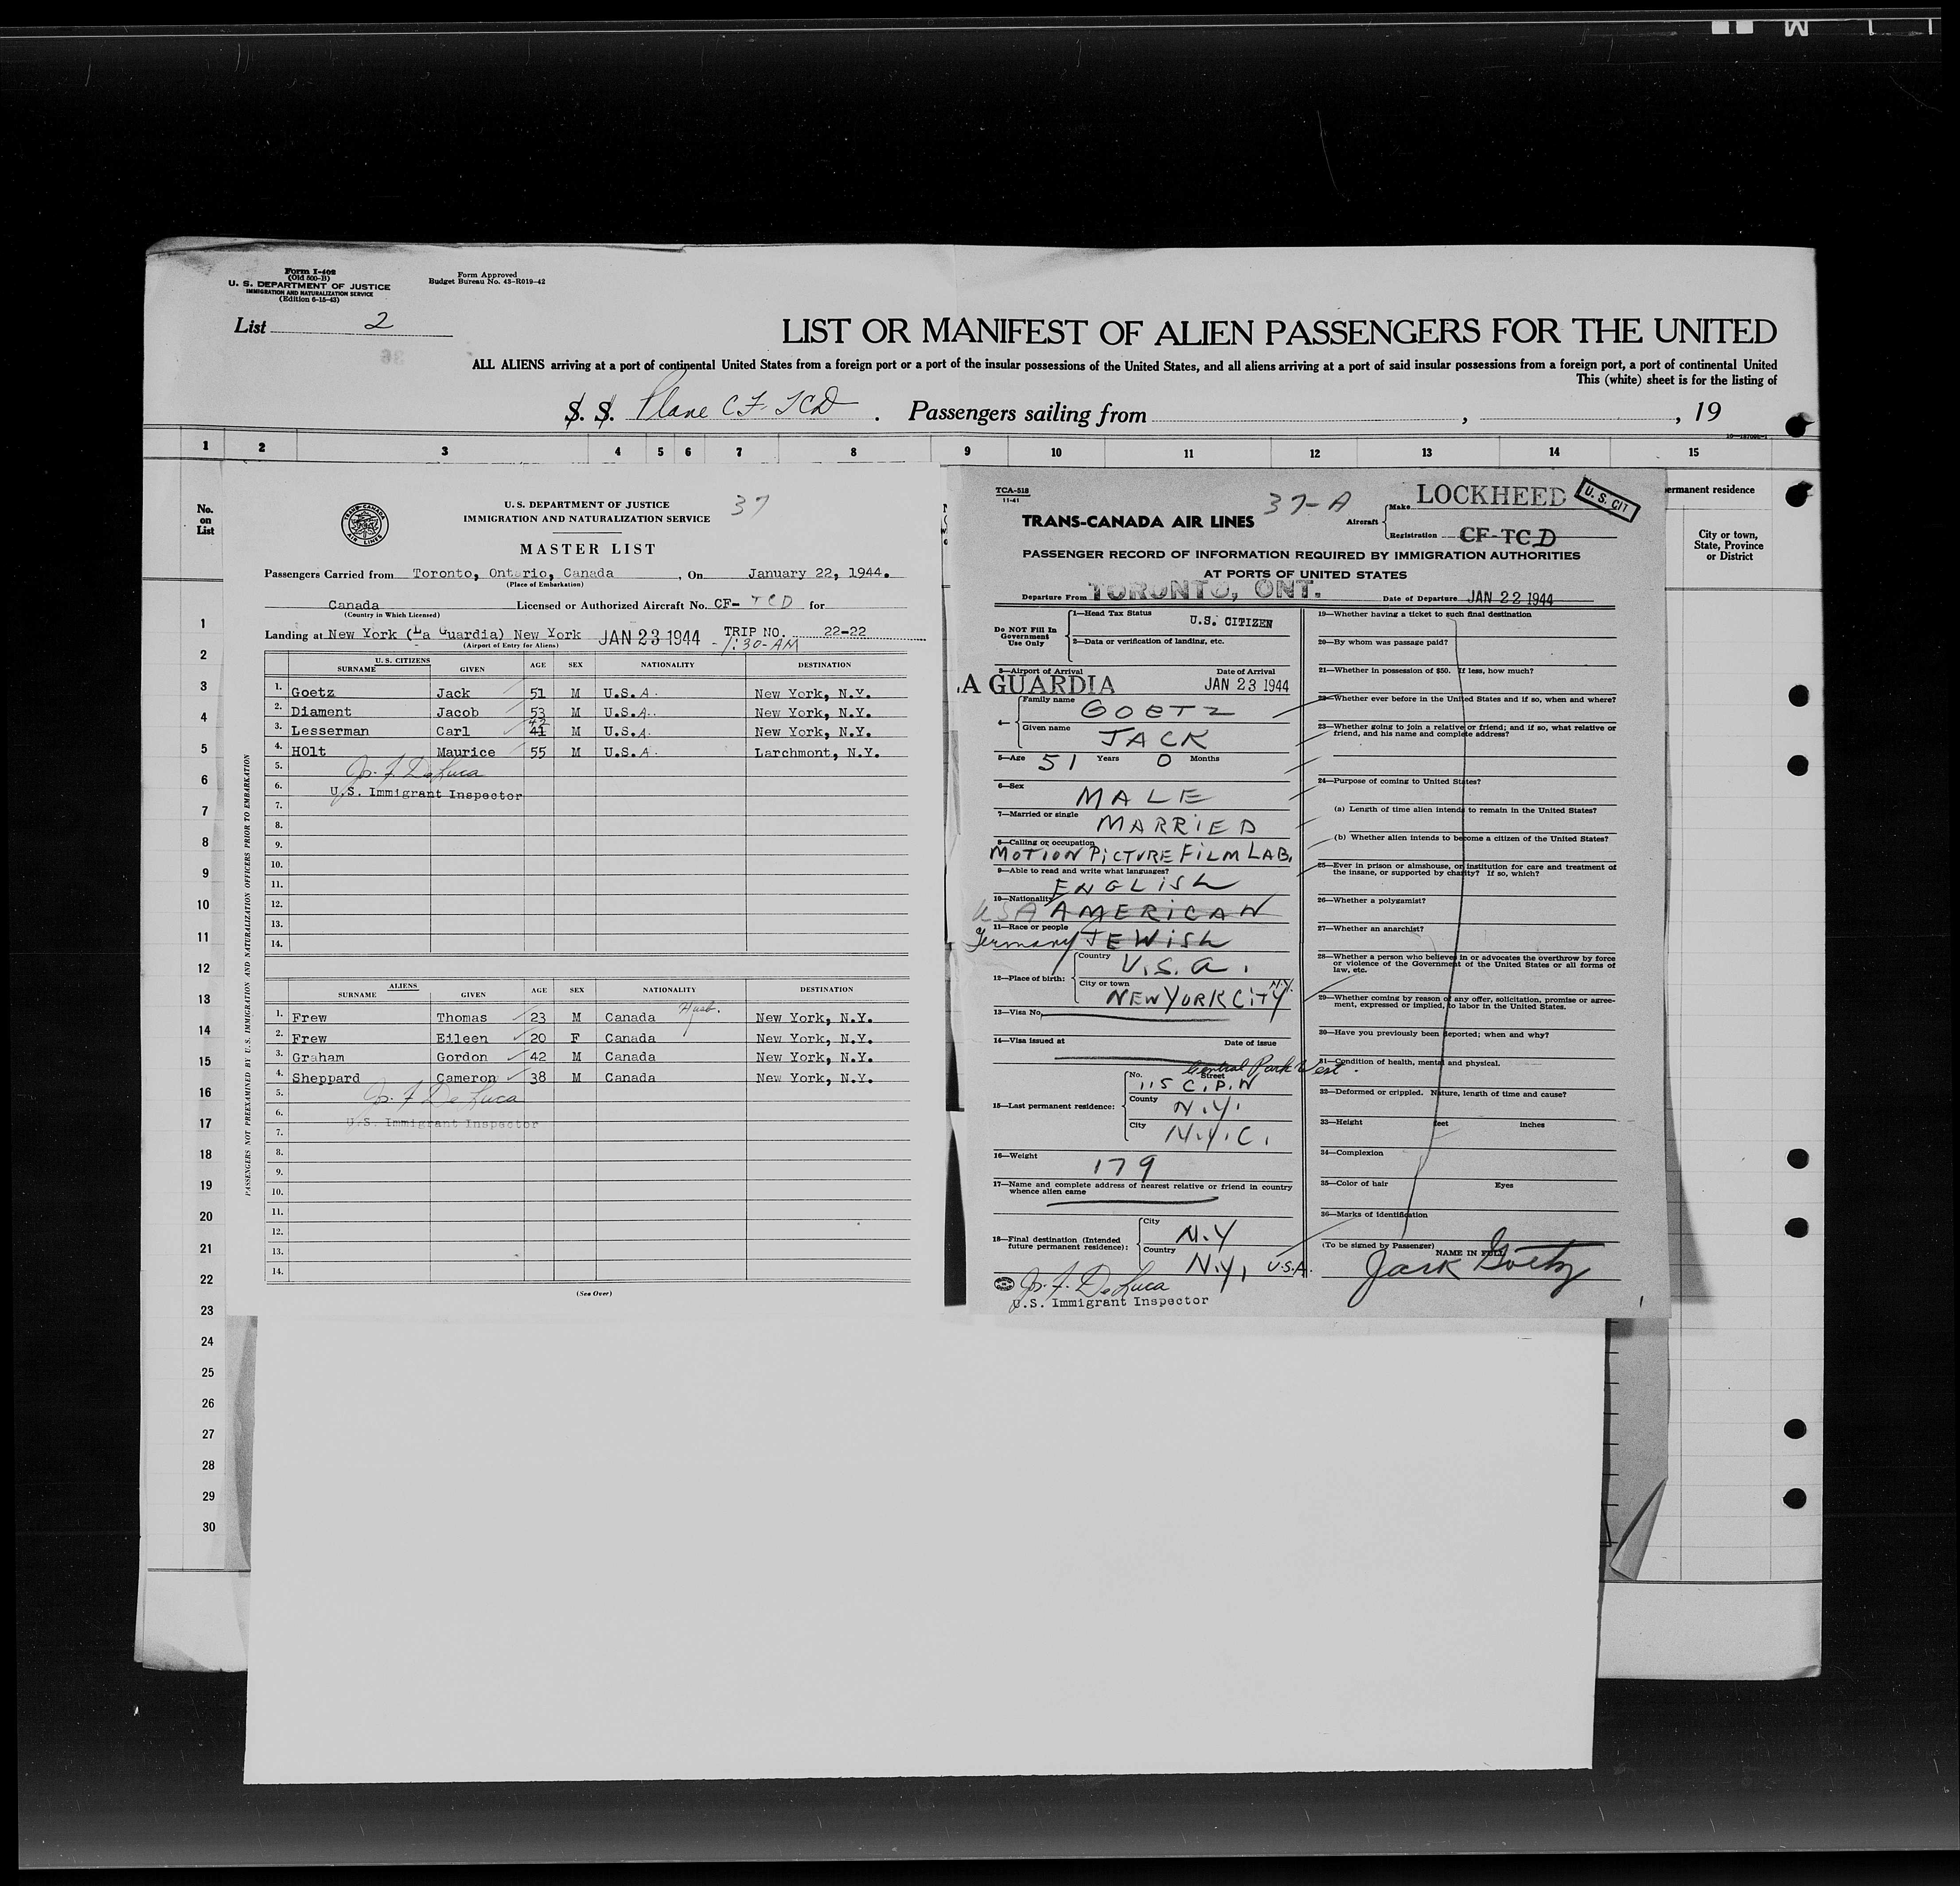 Form I-408
(Old 500-B)
U. S. DEPARTMENT OF JUSTICE
IMMIGRATION AND NATURALIZATION SERVICE
(Edition 6-15-43)
Form Approved
Budget Bureau No. 43-R019-42
List 2
LIST OR MANIFEST OF ALIEN PASSENGERS FOR THE UNITED
ALL ALIENS arriving at a port of continental United States from a foreign port or a port of the insular possessions of the United States, and all aliens arriving at a port of said insular possessions from a foreign port, a port of continental United
This (white) sheet is for the listing of
S. S. Plane CF-TCD . Passengers sailing from , , 19
1 2 3 4 5 6 7 8 9 10 11 12 13 14 15
No.
on
List
1
2
3
4
5
6
7
8
9
10
11
12
13
14
15
16
17
18
19
20
21
22
23
24
25
26
27
28
29
30
ermanent residence
City or town,
State, Province
or District
TRANS-CANADA
AIR LINES
U. S. DEPARTMENT OF JUSTICE
IMMIGRATION AND NATURALIZATION SERVICE
37
MASTER LIST
Passengers Carried from Toronto, Ontario, Canada , On January 22, 1944.
(Place of Embarkation)
Canada Licensed or Authorized Aircraft No. CF- TCD for
(Country in Which Licensed)
Landing at New York (La Guardia) New York JAN 23 1944 TRIP NO. 22-22
(Airport of Entry for Aliens) - 1:30-AM
U. S. CITIZENS
SURNAME GIVEN AGE SEX NATIONALITY DESTINATION
1. Goetz Jack 51 M U.S.A. New York, N.Y.
2. Diament Jacob 53 M U.S.A. New York, N.Y.
3. Lesserman Carl 41 42 M U.S.A. New York, N.Y.
4. HOlt Maurice 55 M U.S.A. Larchmont, N.Y.
5. Jos. F. DeLuca
6. U.S. Immigrant Inspector
7.
8.
9.
10.
11.
12.
13.
14.
ALIENS
SURNAME GIVEN AGE SEX NATIONALITY DESTINATION
1. Frew Thomas 23 M Canada Husb. New York, N.Y.
2. Frew Eileen 20 F Canada New York, N.Y.
3. Graham Gordon 42 M Canada New York, N.Y.
4. Sheppard Cameron 38 M Canada New York, N.Y.
5. Jos. F. DeLuca
6. U.S. Immigrant Inspector
7.
8.
9.
10.
11.
12.
13.
14.
(See Over)
PASSENGERS NOT PREEXAMINED BY U.S. IMMIGRATION AND NATURALIZATION OFFICERS PRIOR TO EMBARKATION
TCA-518
11-41
37-A
LOCKHEED
U. S. CIT
TRANS-CANADA AIR LINES
Aircraft Make
Registration CF-TCD
PASSENGER RECORD OF INFORMATION REQUIRED BY IMMIGRATION AUTHORITIES
AT PORTS OF UNITED STATES
Departure From TORONTO, ONT. Date of Departure JAN 22 1944
Do NOT Fill In
Government
Use Only
1—Head Tax Status
U.S. CITIZEN
2—Data or verification of landing, etc.
3—Airport of Arrival Date of Arrival
A GUARDIA JAN 23 1944
4— Family name
GOETZ
Given name
JACK
5—Age 51 Years 0 Months
6—Sex
MALE
7—Married or single
MARRIED
8—Calling or occupation
MOTION PICTURE FILM LAB.
9—Able to read and write what languages?
ENGLISH
10—Nationality
USA AMERICAN
11—Race or people
Germany JEWISH
12—Place of birth: Country
U.S.A.
City or town N.Y.
NEW YORK CITY
13—Visa No.
14—Visa issued at Date of issue
Central Park West.
15—Last permanent residence: No. Street
115 C.P.W
County
N.Y.
City
N.Y.C.
16—Weight
179
17—Name and complete address of nearest relative or friend in country
whence alien came
18—Final destination (Intended
future permanent residence): City
N.Y
Country
N.Y, U.S.A.
Jos. F. DeLuca
U.S. Immigrant Inspector
19—Whether having a ticket to such final destination
20—By whom was passage paid?
21—Whether in possession of $50. If less, how much?
22—Whether ever before in the United States and if so, when and where?
23—Whether going to join a relative or friend; and if so, what relative or
friend, and his name and complete address?
24—Purpose of coming to United States?
(a) Length of time alien intends to remain in the United States?
(b) Whether alien intends to become a citizen of the United States?
25—Ever in prison or almshouse, or institution for care and treatment of
the insane, or supported by charity? If so, which?
26—Whether a polygamist?
27—Whether an anarchist?
28—Whether a person who believes in or advocates the overthrow by force
or violence of the Government of the United States or all forms of
law, etc.
29—Whether coming by reason of any offer, solicitation, promise or agree-
ment, expressed or implied, to labor in the United States.
30—Have you previously been deported; when and why?
31—Condition of health, mental and physical.
32—Deformed or crippled. Nature, length of time and cause?
33—Height feet inches
34—Complexion
35—Color of hair Eyes
36—Marks of identification
(To be signed by Passenger) NAME IN FULL
Jack Goetz